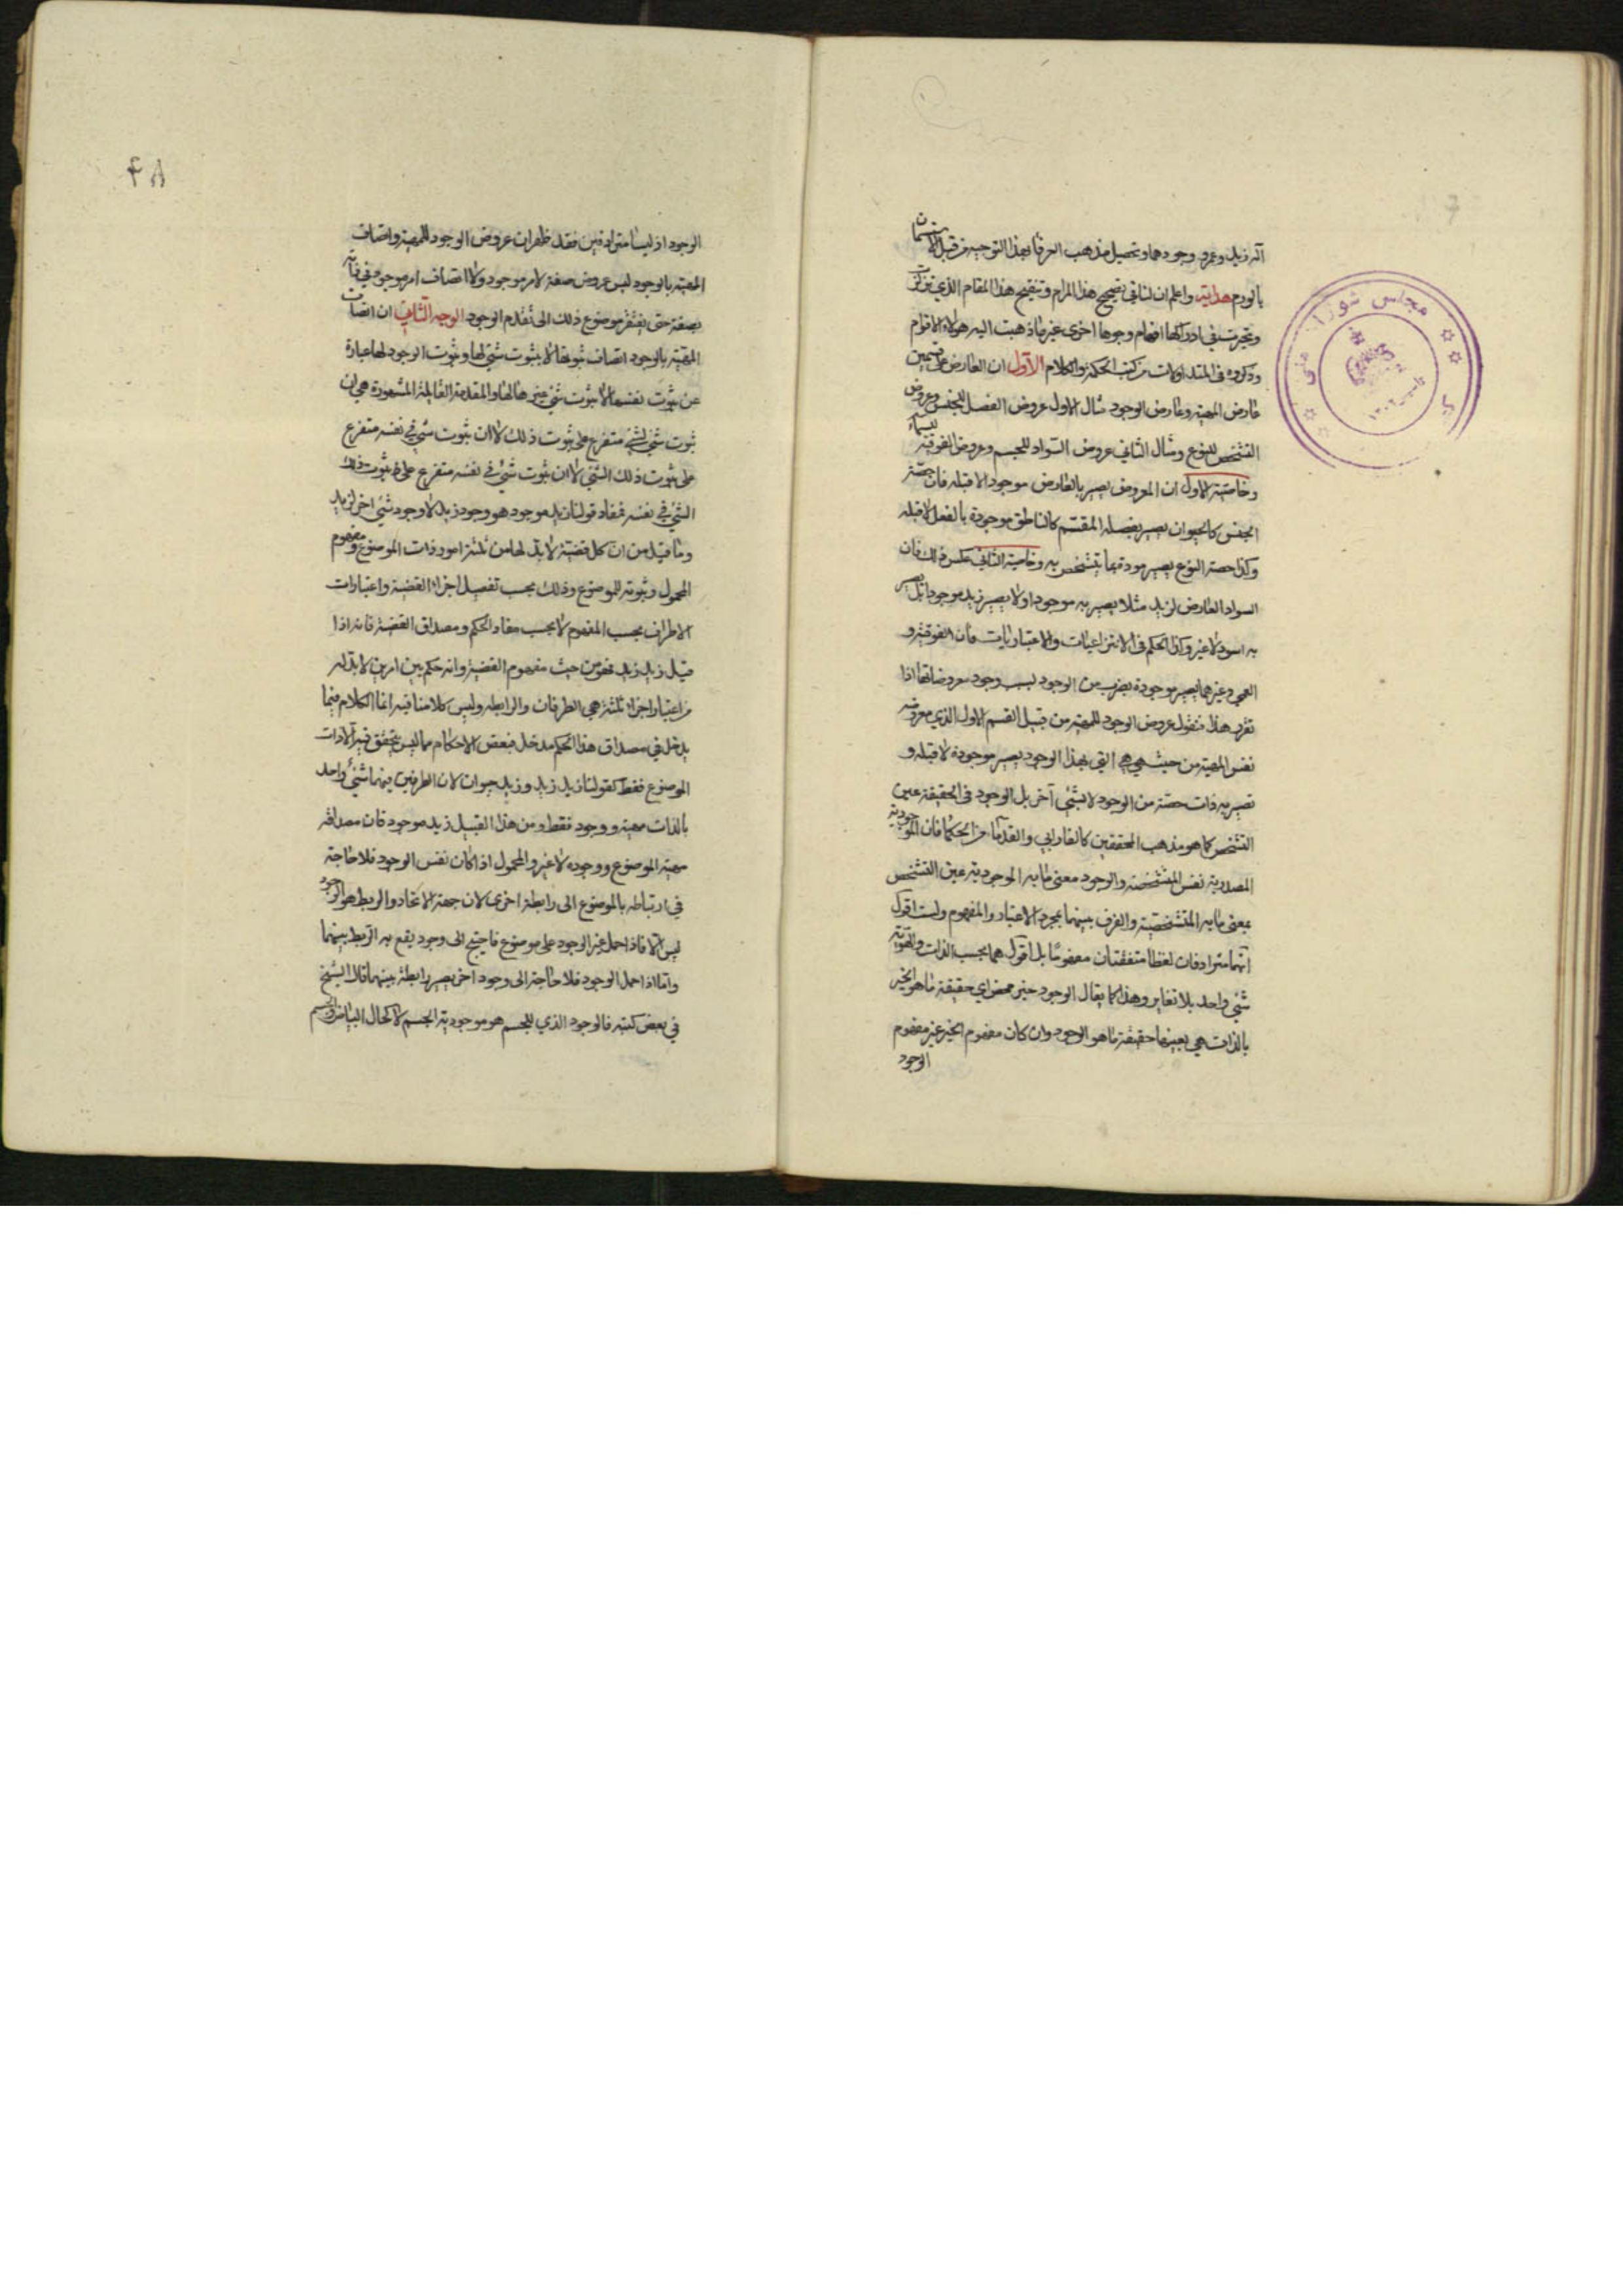 انه زيد وعمرو وجودهما وتحصيل مذهب العرفا بهذا التوجيه من قبيل الاستسمان
بالورم هداية واعلم ان لنا في تصحيح هذا المرام وتنقيح هذا المقام الذي تزلزلت
وتحيرت في ادراكها افهام وجوها اخرى غير ما ذهبت اليه هولاء الاقوام
وذكروه في المتداولات من كتب الحكمة والكلام الاول ان العارض على قسمين
عارض المهية وعارض الوجود مثال الاول عروض الفصل للجنس وعروض
التشخص للنوع ومثال الثاني عروض السواد للجسم وعروض الفوقية للسماء
وخاصية الاول ان المعروض يصير بالعارض موجودا لا قبله فان حصة
الجنس كالحيوان يصير بفصله المقسم كالناطق موجودة بالفعل لا قبله
وكذا حصة النوع يصير موجودة بما يتشخص به وخاصية الثاني عكس ذلك فان
السواد العارض لزيد مثلا يصير به موجودا ولا يصير زيد موجودا بل يصير
به اسود لا غير وكذا الحكم في الانتزاعيات والاعتباريات فان الفوقية و
العمى وغيرهما يصير موجودة بضرب من الوجود لسبب وجود معروضاتها اذا
تقرر هذا فنقول عروض الوجود للمهية من قبيل القسم الاول الذي معروضه
نفس المهية من حيث هي هي التي بهذا الوجود يصير موجودة لا قبله و
تصير به ذات حصة من الوجود لا بشئي آخر بل الوجود في الحقيقة عين
التشخص كما هو مذهب المحققين كالفارابي والقدما من الحكما فان الموجودية
المصدرية نفس المتشخصة والوجود معنى ما به الموجودية عين التشخص
بمعنى ما به المتشخصية والفرق بينهما بمجرد الاعتبار والمفهوم ولست اقول
انهما مترادفان لفظا متفقتان مفهوما بل اقول هما بحسب الذات والهوية
شئي واحد بلا تغاير وهذا كما يقال الوجود خير محض اي حقيقة ما هو الخير
بالذات هي بعينها حقيقة ما هو الوجود وان كان مفهوم الخير غير مفهوم
الوجود
مجلس شوراى ملى
١٣٠٢
٤٨
الوجود اذ ليسا مترادفين فقد ظهر ان عروض الوجود للمهية واتصاف
المهية بالوجود ليس عروض صفة لامر موجود ولا اتصاف امر موجود في ذاته
بصفة حتى يفتقر موضوع ذلك الى تقدم الوجود الوجه الثاني ان اتصاف
المهية بالوجود اتصاف ثبوتها لا بثبوت شئي لها وثبوت الوجود لها عبارة
عن ثبوت نفسها لا ثبوت شئي غيرها لها والمقدمة القايلة المشهورة هي ان
ثبوت شئي لشئي متفرع على ثبوت ذلك لا ان ثبوت شئي في نفسه متفرع
على ثبوت ذلك الشئي لا ان ثبوت شئي في نفسه متفرع على ثبوت ذلك
الشئي في نفسه فمفاد قولنا زيد موجود هو وجود زيد لا وجود شئي اخر لزيد
وما قيل من ان كل قضية لا بد لها من ثلثة امور ذات الموضوع ومفهوم
المحمول وثبوته للموضوع وذلك بحسب تفصيل اجزاء القضية واعتبارات
الاطراف بحسب المفهوم لا بحسب مفاد الحكم ومصداق القضية فانه اذا
قيل زيد زيد فهو من حيث مفهوم القضية وانه حكم بين امرين لا بد له
من اعتبار اجزاء ثلثة هي الطرفان والرابطه وليس كلامنا فيه انما الكلام فيما
يدخل في مصداق هذا الحكم مدخل فبعض الاحكام مما ليس يتحقق فيه الا ذات
الموضوع فقط كقولنا زيد زيد وزيد حيوان لان الطرفين فيهما شئي واحد
بالذات مهية ووجود فقط ومن هذا القبيل زيد موجود فان مصداقه
مهية الموضوع ووجوده لا غير والمحمول اذا كان نفس الوجود فلا حاجة
في ارتباطه بالموضوع الى رابطة اخرى لان جهة الاتحاد والربط هو الوجود
ليس الا فاذا حمل غير الوجود على موضوع فاحتيج الى وجود يقع به الربط بينهما
واما اذا حمل الوجود فلا حاجة الى وجود اخر يصير رابطة بينهما قال الشيخ
في بعض كتبه فالوجود الذي للجسم هو موجودية الجسم لا كحال البياض والجسم